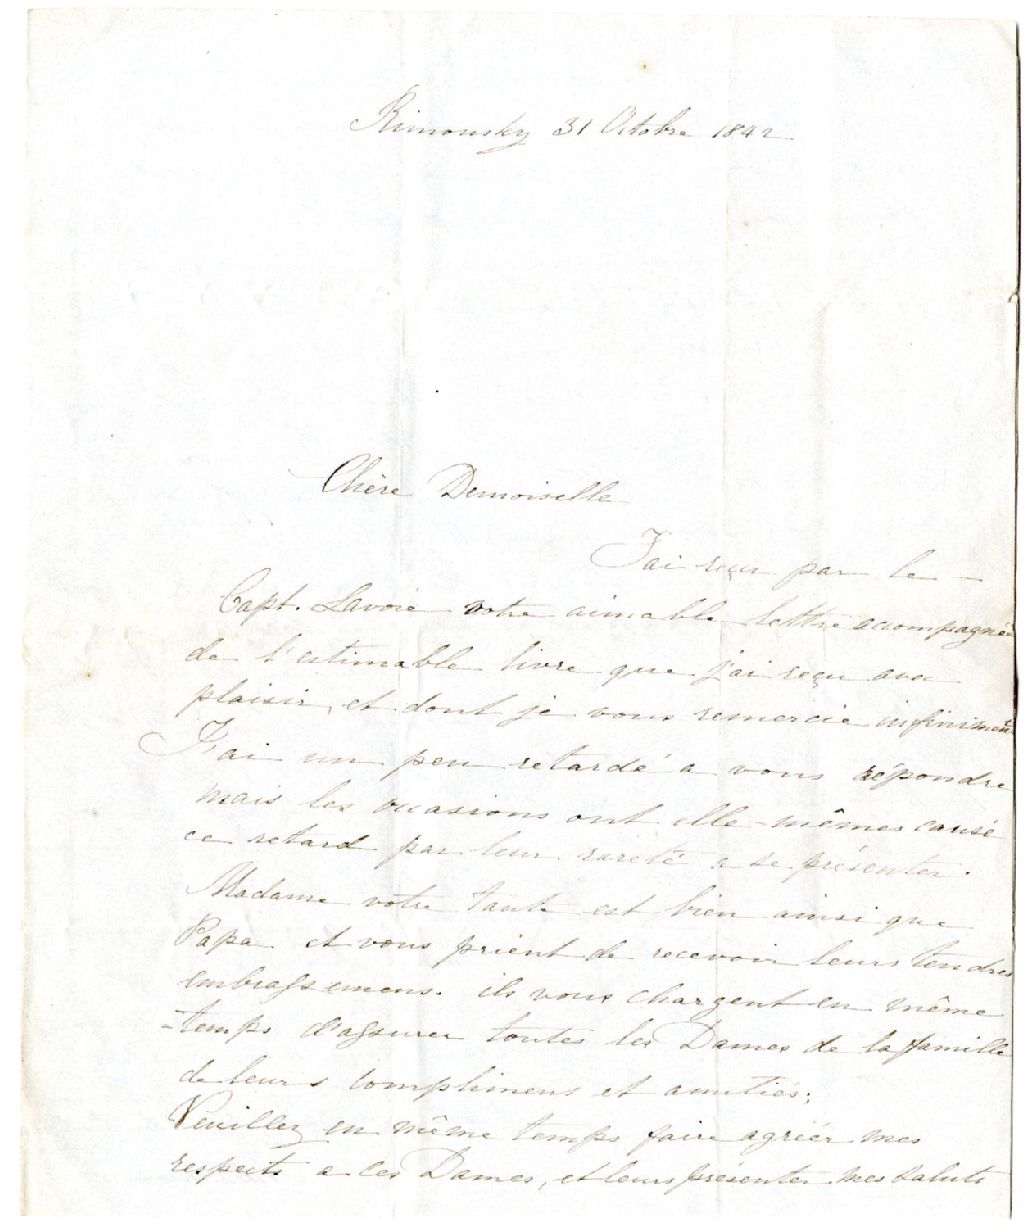 Rimousky 31 Octobre 1842
Chère Demoiselle
J'ai reçu par le -
Capt. Lavoie votre aimable lettre accompagnée
de l'estimable livre que j'ai reçu avec
plaisir, et dont je vous remercie infiniment
J'ai un peu retardé a vous répondre
mais les occasions ont elle-mêmes causé
ce retard par leur rareté a se présenter.
Madame votre tante est bien ainsi que
Papa et vous prient de recevoir leurs tendres
embrassemens. ils vous chargent en même
-temps d'assurer toutes les Dames de la famille
de leurs complimens et amitiés;
Veuillez en même temps faire agréer mes
respects a ces Dames, et leurs présenter mes saluts